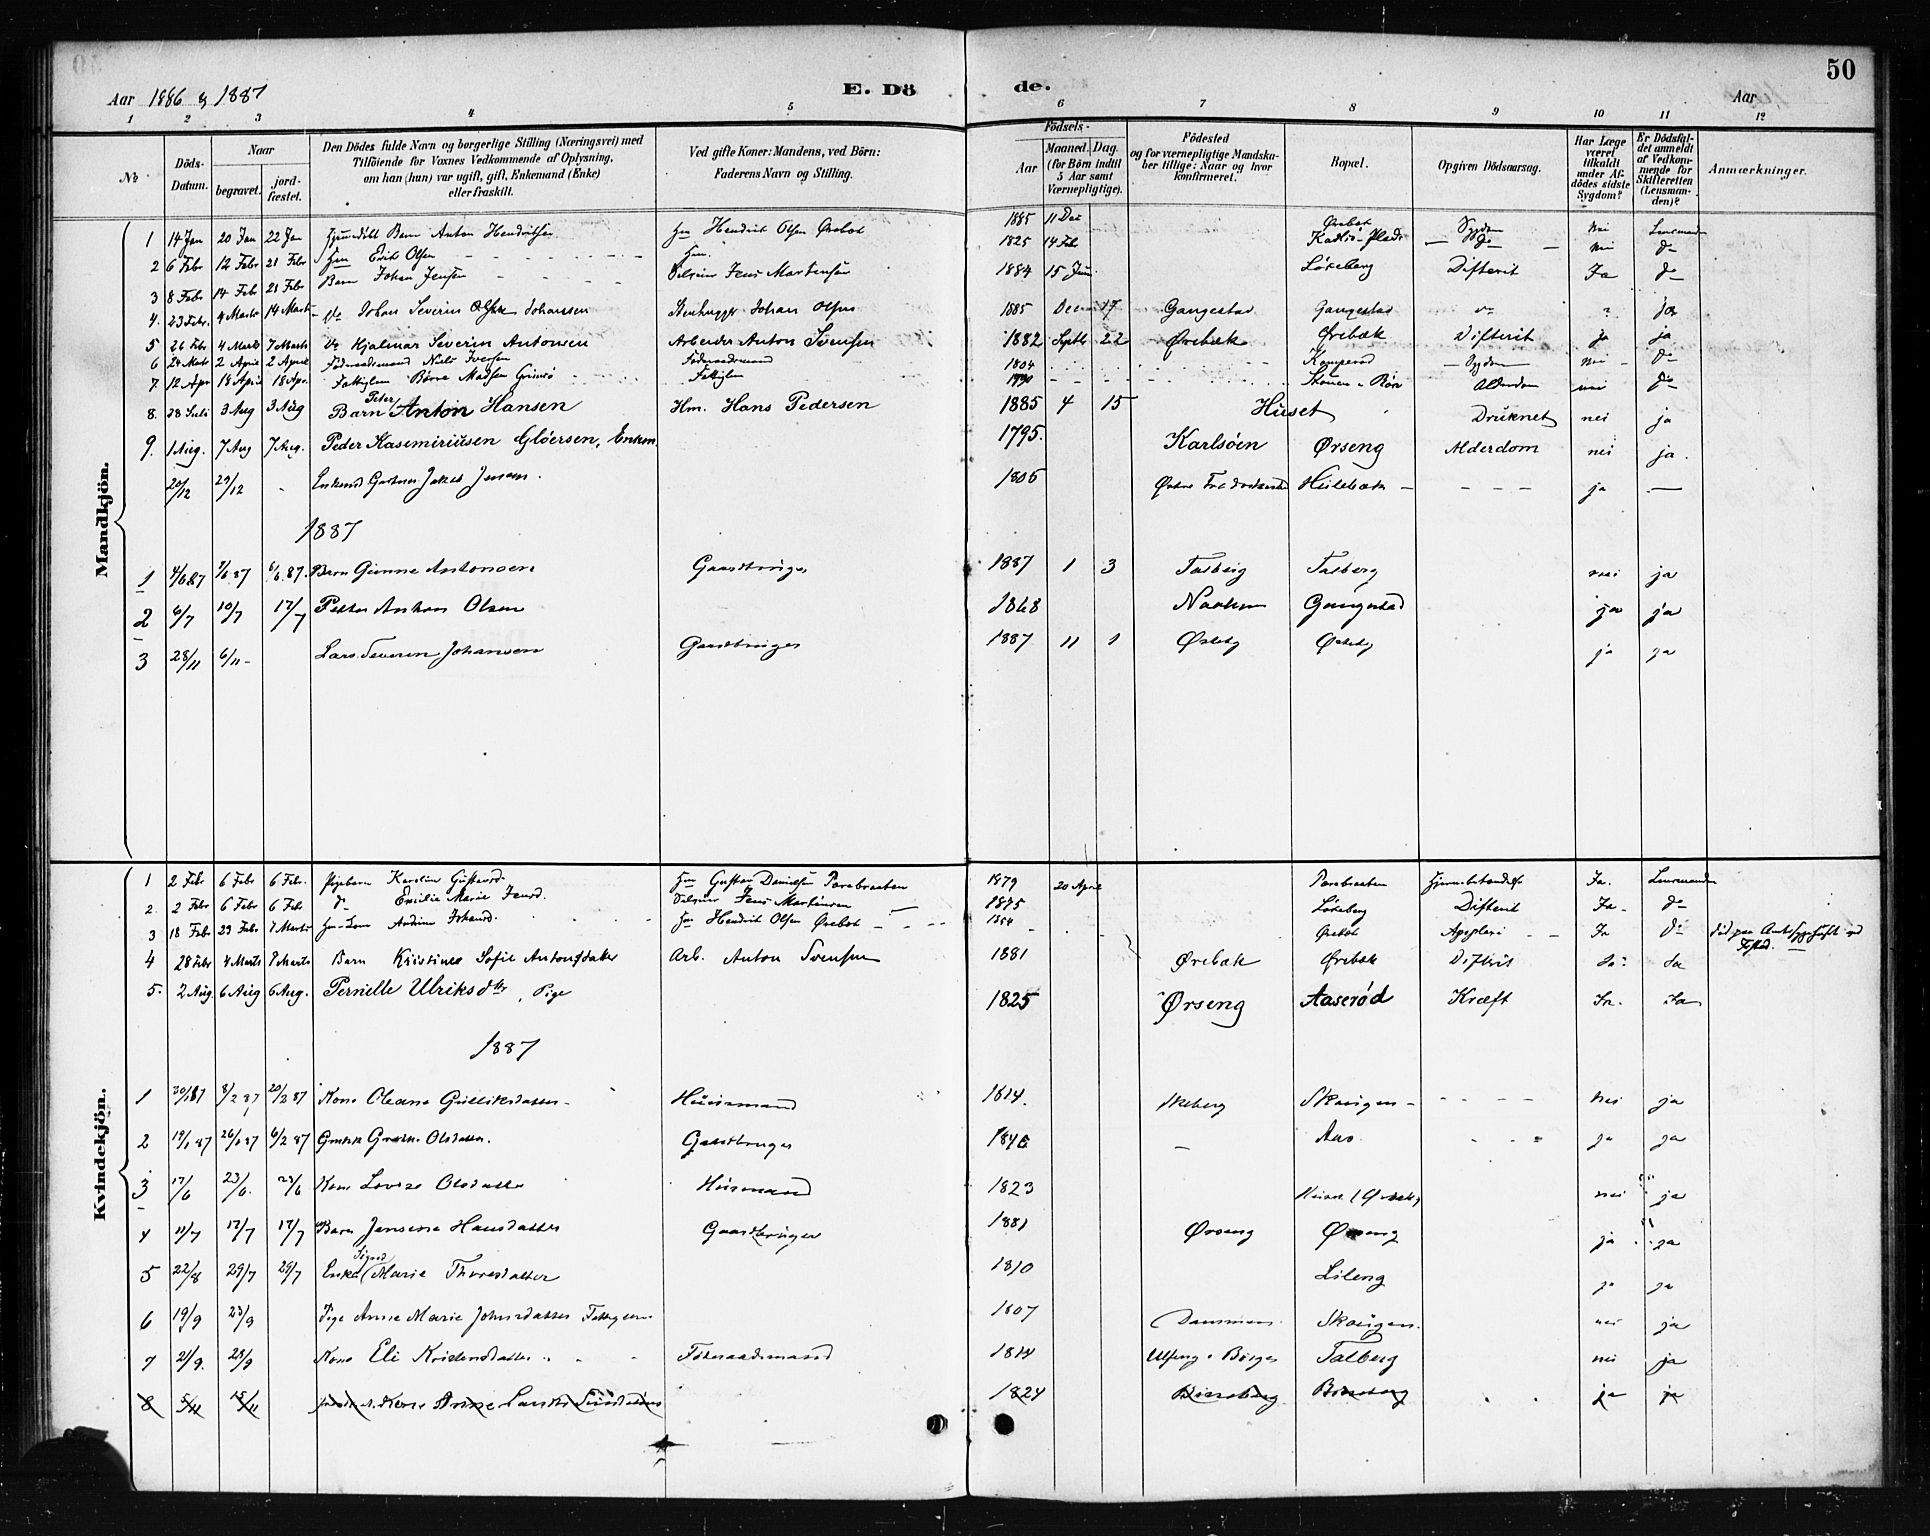 Aar 1886 & 1887
E. Dö
de.
50
Aar
1 2 3 4 5 6 7 8 9 10 11 12
No
Döds-Datum.
Naar
begravet.
jord-fæstet.
Den Dödes fulde Navn og borgerlige Stilling (Næringsvei) med
Tilföiende for Voxnes Vedkommende af Oplysning,
om han (hun) var ugift, gift, Enkemand (Enke)
eller fraskilt.
Ved gifte Koner: Mandens, ved Börn:
Faderens Navn og Stilling.
Födsels-
Aar
Maaned. Dag.
(for Börn indtil
5 Aar samt
Værnepligtige).
Födested
og for værnepligtige Mandska-
ber tillige: Naar og hvor
konfirmeret.
Bopæl.
Opgiven Dödsaarsag.
Har Læge
været
tilkaldt
under Af-
dödes sidste
Sygdom?
Er Dödsfal-
det anmeldt
af Vedkom-
mende for
Skifteretten
(Lensman-
den)?
Anmærkninger.
Mandkjön.
1 14 Jan 20 Jan 22 Jan Barn Anton Hendriksen Hendrik Olsen Ørebæk 1885 11 Dec Ørebæk Sygdom Nei Lensmanden
2 6 Febr 12 Febr 21 Febr Hm Erik Olsen Hm. 1825 14 Feb Plads do nei do
3 8 Febr 14 Feb 21 Febr Barn Johan Jensen Jens Martinsen 1884 15 Jun Løkeberg Difterit Ja do
4. 23 Febr. 4 Marts 14 Marts do Johan Severin Johansen Stenhugger Johan Olsen 1885 Decem 17 Gangestad Gangestad do ? ja
5 26 Febr 4 Marts 7 Marts do Hjalmar Severin Antonsen Arbeider Anton Svensen 1882 Septb 22 Ørebæk Ørebæk Difterit ja ja
6 24 Mart 2 April 2 April Føderaadsmand Nils Iversen Føderaadsmand 1804 Sygdom nei do
7. 12 Apr 18 April 18 Apr. Fattiglem Børre Madsen Grimsø Fattiglem Alderdom nei do
8. 28 Juli 3 Aug 3 Aug Barn Peter Anton Hansen Hm. Hans Pedersen 1885 4 15 Huset Druknet nei ja
9. 1 Aug. 7 Aug 7 Aug. Peder Kasimiriusen Gløersen, Enkem. 1795. Karlsøen Ørseng Alderdom nei ja.
20/12 29/12 - Enkemd Jakob Jensen. 1806 - - - ja —
1887
1 4/6 87 7/6 87 6/6.87. Barn Gunne Antonsen Gaardbruger 1887 1 3 Talberg Talberg nei ja
2 6/7 10/7 17/7 Petter Anton Olsen 1868 Gangestad ja ja
3 28/11 6/11 - Lars Severin Johansen Gaardbruger 1887 11 1 Østeby Østeby ja ja
Kvindekjön.
1 2 Febr 6 Febr 6 Febr. Pigebarn Karoline Gustavsd. Hm Gustav Danielsen Porsbraaten 1879 20 April Porsbraaten Hjernebetændelse Ja. Lensmanden
2. 2 Febr 6 Febr 6 Febr do Emilie Marie Jensd. Jens Martinsen 1875 Løkeberg Difterit Ja - do
3 18 Febr 23 Febr 7 Marts Andrine Johansd. Hm Hendrik Olsen Ørebæk 1854 Ørebæk Apoplexi Ja do
4 28 Febr 4 Marts 7 Marts Barn Kristine Sofie Antonsdatter Arb. Anton Svensen 1881 Ørebæk Ørebæk Difterit Ja Ja
5. 2 Aug. 6 Aug 6 Aug. Pernille Ulriksdtr, Pige 1825 Ørseng Aaserød Kræft Ja. Ja
1887
1 30/1 87 8/2 87 20/2 87 Kone Oleane Gulliksdatter Huusmand 1814. Skeberg Skaugen - - - - nei ja
2 19/1 87 26/1 87 6/2 87 Olsdatter. Gaardbruger - Aas ja ja
3 17/6 23/6. 23/6 Kone Lovise Olsdatter Huusmand 1823 nei ja
4 11/7 17/7 17/7 Barn Jensene Hansdatter Gaardbruger 1881 Ørseng Ørseng ja ja
5 22/8 29/7 29/7 Enke Sigrid Marie Thoresdatter 1810 Lileng ja ja
6 19/9 23/9 Pige Anne Marie Johnsdatter Fattiglem 1807 Dammen Skaugen. nei ja
7 21/9. 28/9 Kone Eli Kristensdatter Føderaadsmand 1814 Talberg nei ja
8 5/11 15/11 Kone Anne 1824 ja ja